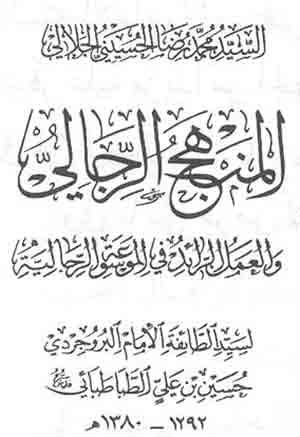 السَّيِّد مُحَمَّد رِضَا الحُسَيْني الجَلَالي
المَنْهَجُ الرِّجَاليُّ
وَالعَمَل الرَّائِدُ في المَوسُوعَةِ الرِّجَاليَّةِ
لِسَيِّدِ الطَّائِفَةِ الإِمَامِ البُرُوجِرْدِي
حُسَيْن بْن عَلي الطَّبَاطَبَائي
١٢٩٢ – ١٣٨٠ هـ